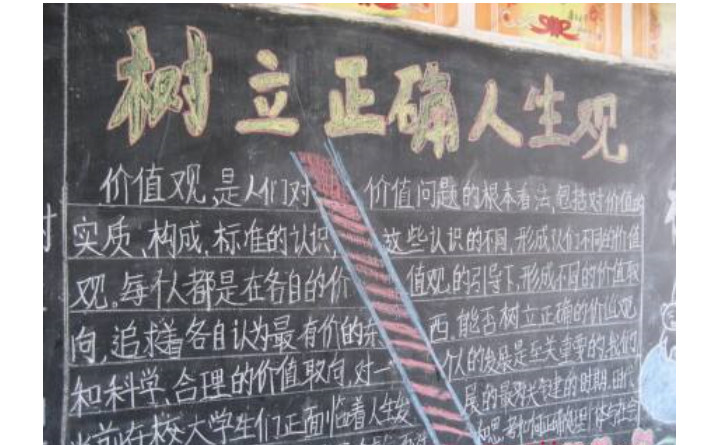 树立正确人生观
价值观,是人们对价值问题的根本看法,包括对价值的
实质、构成、标准的认识,这些认识的不同,形成人们不同的价值
观。每个人都是在各自的价值观的引导下,形成不同的价值取
向,追求着各自认为最有价的东西,能否树立正确的价值观
和科学、合理的价值取向,对一个人的发展是至关重要的,我们
当前在校大学生们正面临着人生发展的最关键的时期